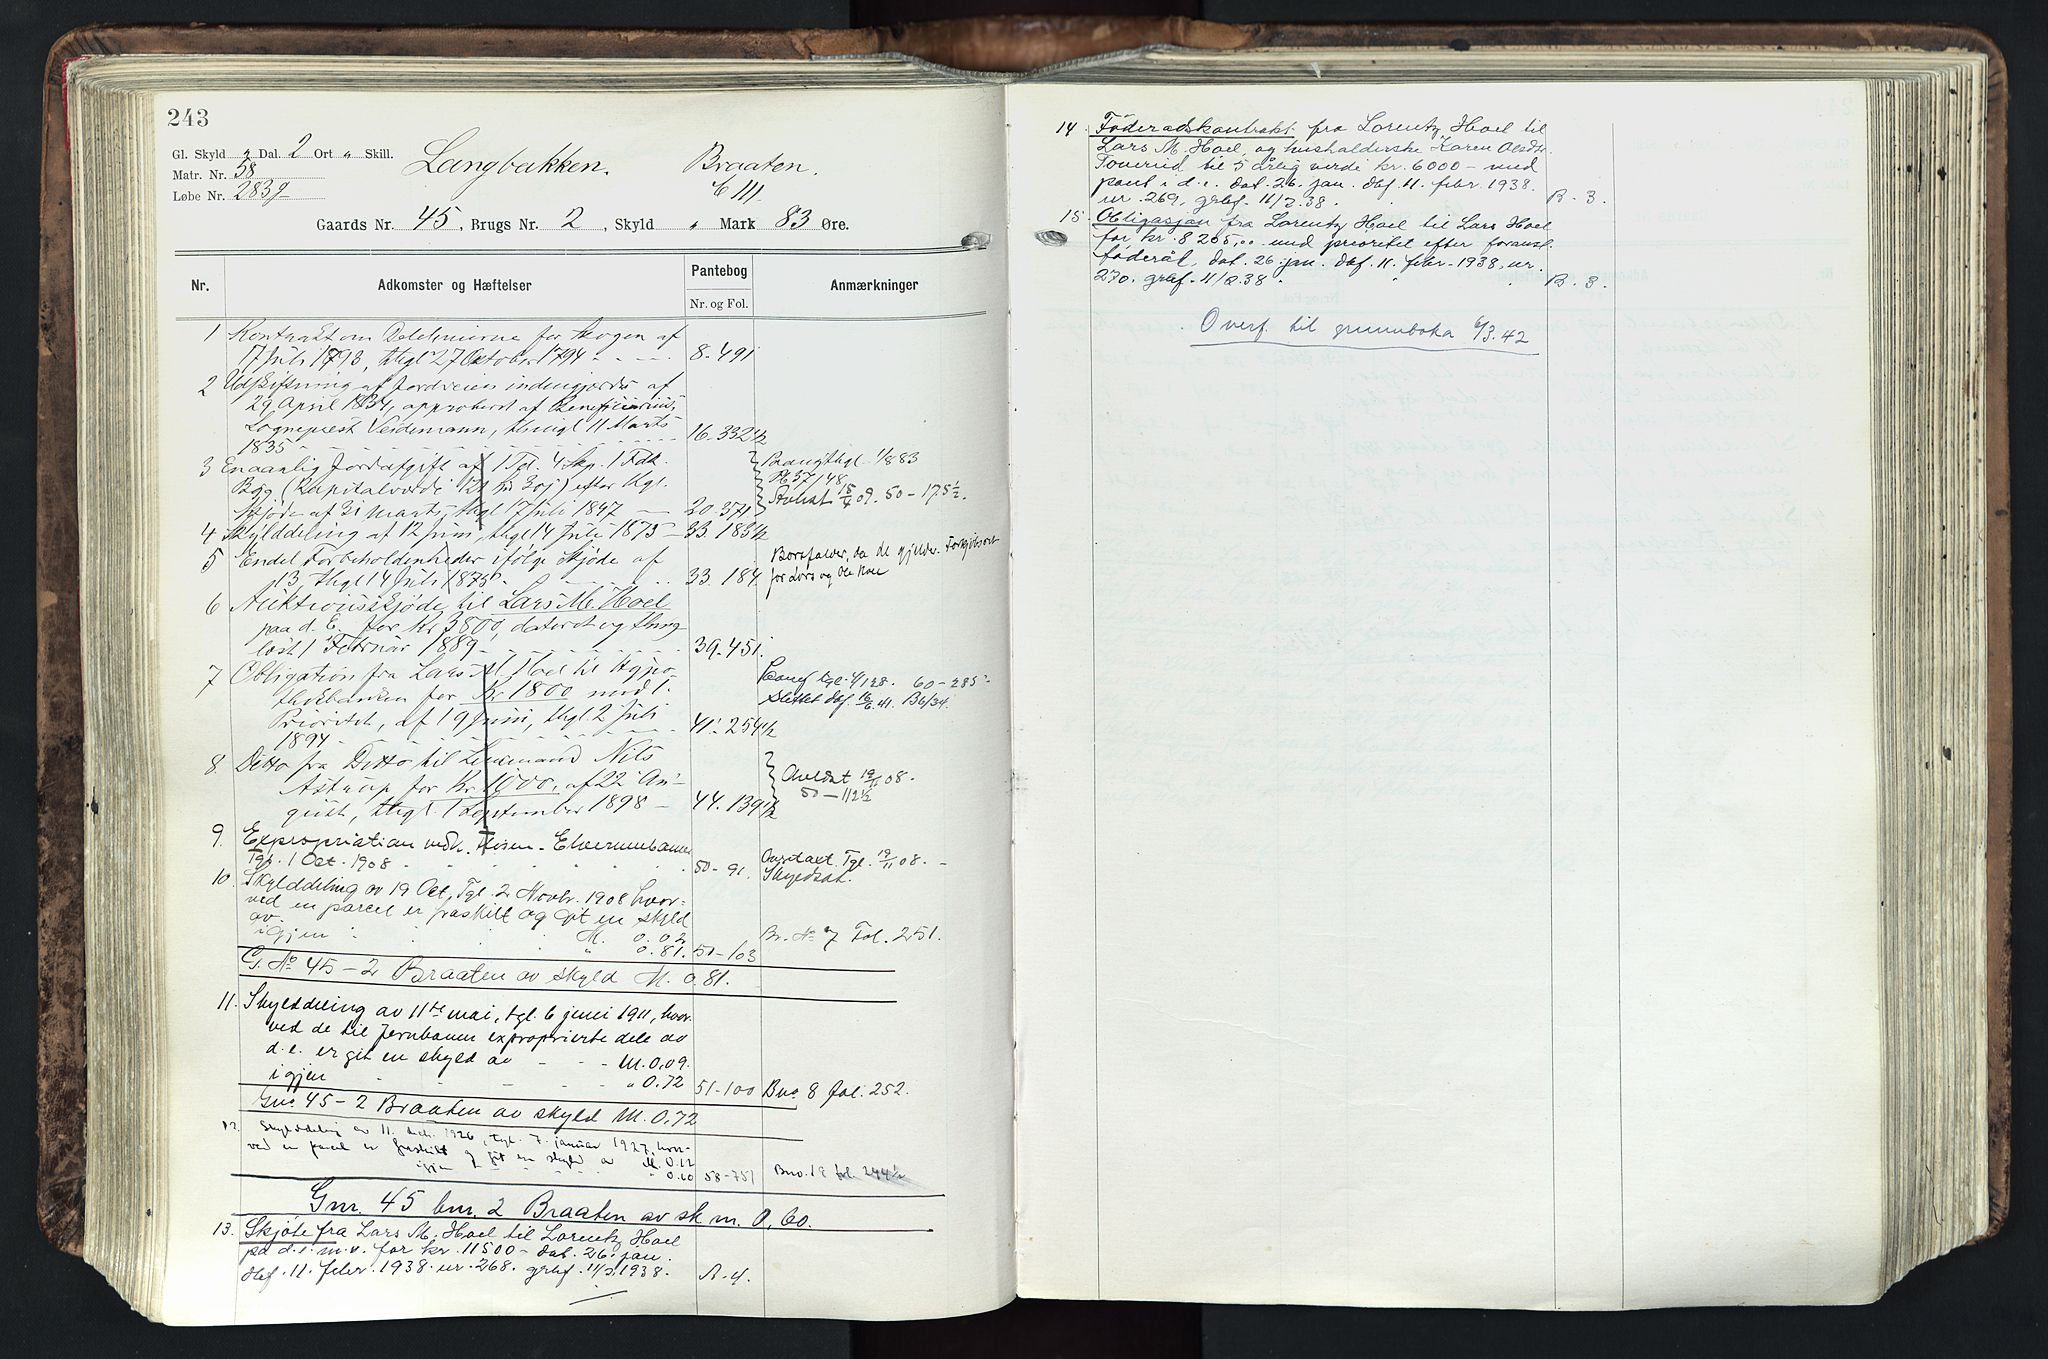 243
Gl. Skyld " Dal. 2 Ort " Skill.
Matr. Nr. 58
Løbe Nr. 2839
Langbakken. Braaten.
Gaards Nr. 45, Brugs Nr. 2, Skyld " Mark 83 Øre.
Nr. Adkomster og Hæftelser Pantebog Anmærkninger
Nr. og Fol.
1 Kontrakt om Delelinierne for Skogen af
17 Juli 1793, thgl 27 October 1794 8. 491
2 Udskiftning af Jordveien indengjerds af
29 April 1834, approberet af Beneficiarius
Sogneprest Veidemann, thingl 11 Marts
1835 16. 332½
3 En aarlig Jordafgift af 1 Td. 4 Skp. 1 Fdk.
Byg (Kapitalværdi efter thgl.
Skjøde af 31 Marts, thgl 17 Juli 1847 20. 371
Avlyst 15/4 09. 50 – 175½.
4 Skylddeling af 12 Juni, thgl 14 Juli 1875 33. 183½
5 Endel Forbeholdenheder ifølge Skjøde af
13, thgl 14 Juli 1875. 33. 184
Bortfalder, da de gjelder
for Lars og Ole Hoel
6 Auktionsskjøde til Lars M. Hoel
paa d. E. for Kr 3800, dateret og thing
læst 1 Februar 1889 39. 451.
7 Obligation fra Lars M. Hoel til Hypo-
thekbanken for Kr 1800 med 1.
Prioritet, af 19 Juni, thgl. 2 Juli
1894 41. 254½
60 – 285
Slettet dbf. 16/6 41. B6/34.
8. Ditto fra Ditto til Lensmand Nils
Astrup for Kr. 1000, af 22 Au-
gust, thgl. 1 September 1898 44. 139½
Avlyst 19/11 08.
50 – 112½
9. Expropriation vedk. Rena - Elverumbanen
Tgl. 1 Oct. 1908 50 – 91.
Tgl. 19/11 08. –
10. Skylddeling av 19 Oct, Tgl. 2 Novbr. 1908 hvor-
ved en parcel er fraskilt og git en skyld
av M. 0.02
igjen " 0.81. 50 – 103
Br. No 7 Fol. 251.
G. No 45 – 2 Braaten av skyld M. 0.81.
11. Skylddeling av 11te mai, tgl. 6 juni 1911, hvor-
ved de til Jernbanen exproprierte dele av
d. e. er git en skyld av – – – M. 0,09.
igjen " 0.72 51 – 100 Bno 8 fol. 252.
Gno 45 – 2 Braaten av skyld M. 0,72
12. Skylddeling av 11. des. 1926, tgl. 7. januar 1927, hvor-
ved en parcel er fraskilt og git en skyld av M. 0.12
igjen " 0.60 58 – 751 Bno. 19 fol. 244½
Gnr. 45 bnr. 2 Braaten av sk m. 0,60.
13. Skjøte fra Lars M. Hoel til Lorentz Hoel
på d. e. m. v. for kr. 11500 – dat. 26. jan.
dbf. 11. febr. 1938. nr. 268. grbf. 11/2 1938. A. 4.
14. Føderådskontrakt fra Lorentz Hoel til
Lars M. Hoel og husholderske Karen Olsdtr.
til 5 årlig verdi kr. 6000 – med
pant i d. e. dat. 26. jan. dbf. 11. febr. 1938.
nr. 269, grbf. 11/2 38. B. 3.
15. Obligasjon fra Lorentz Hoel til Lars Hoel
for kr. 8205,00 med prioritet efter foranst.
føderåd, dat. 26. jan. dbf. 11. febr. 1938, nr.
270. grbf. 11/2 38. B. 3.
Overf. til grunnboka 6/3.42